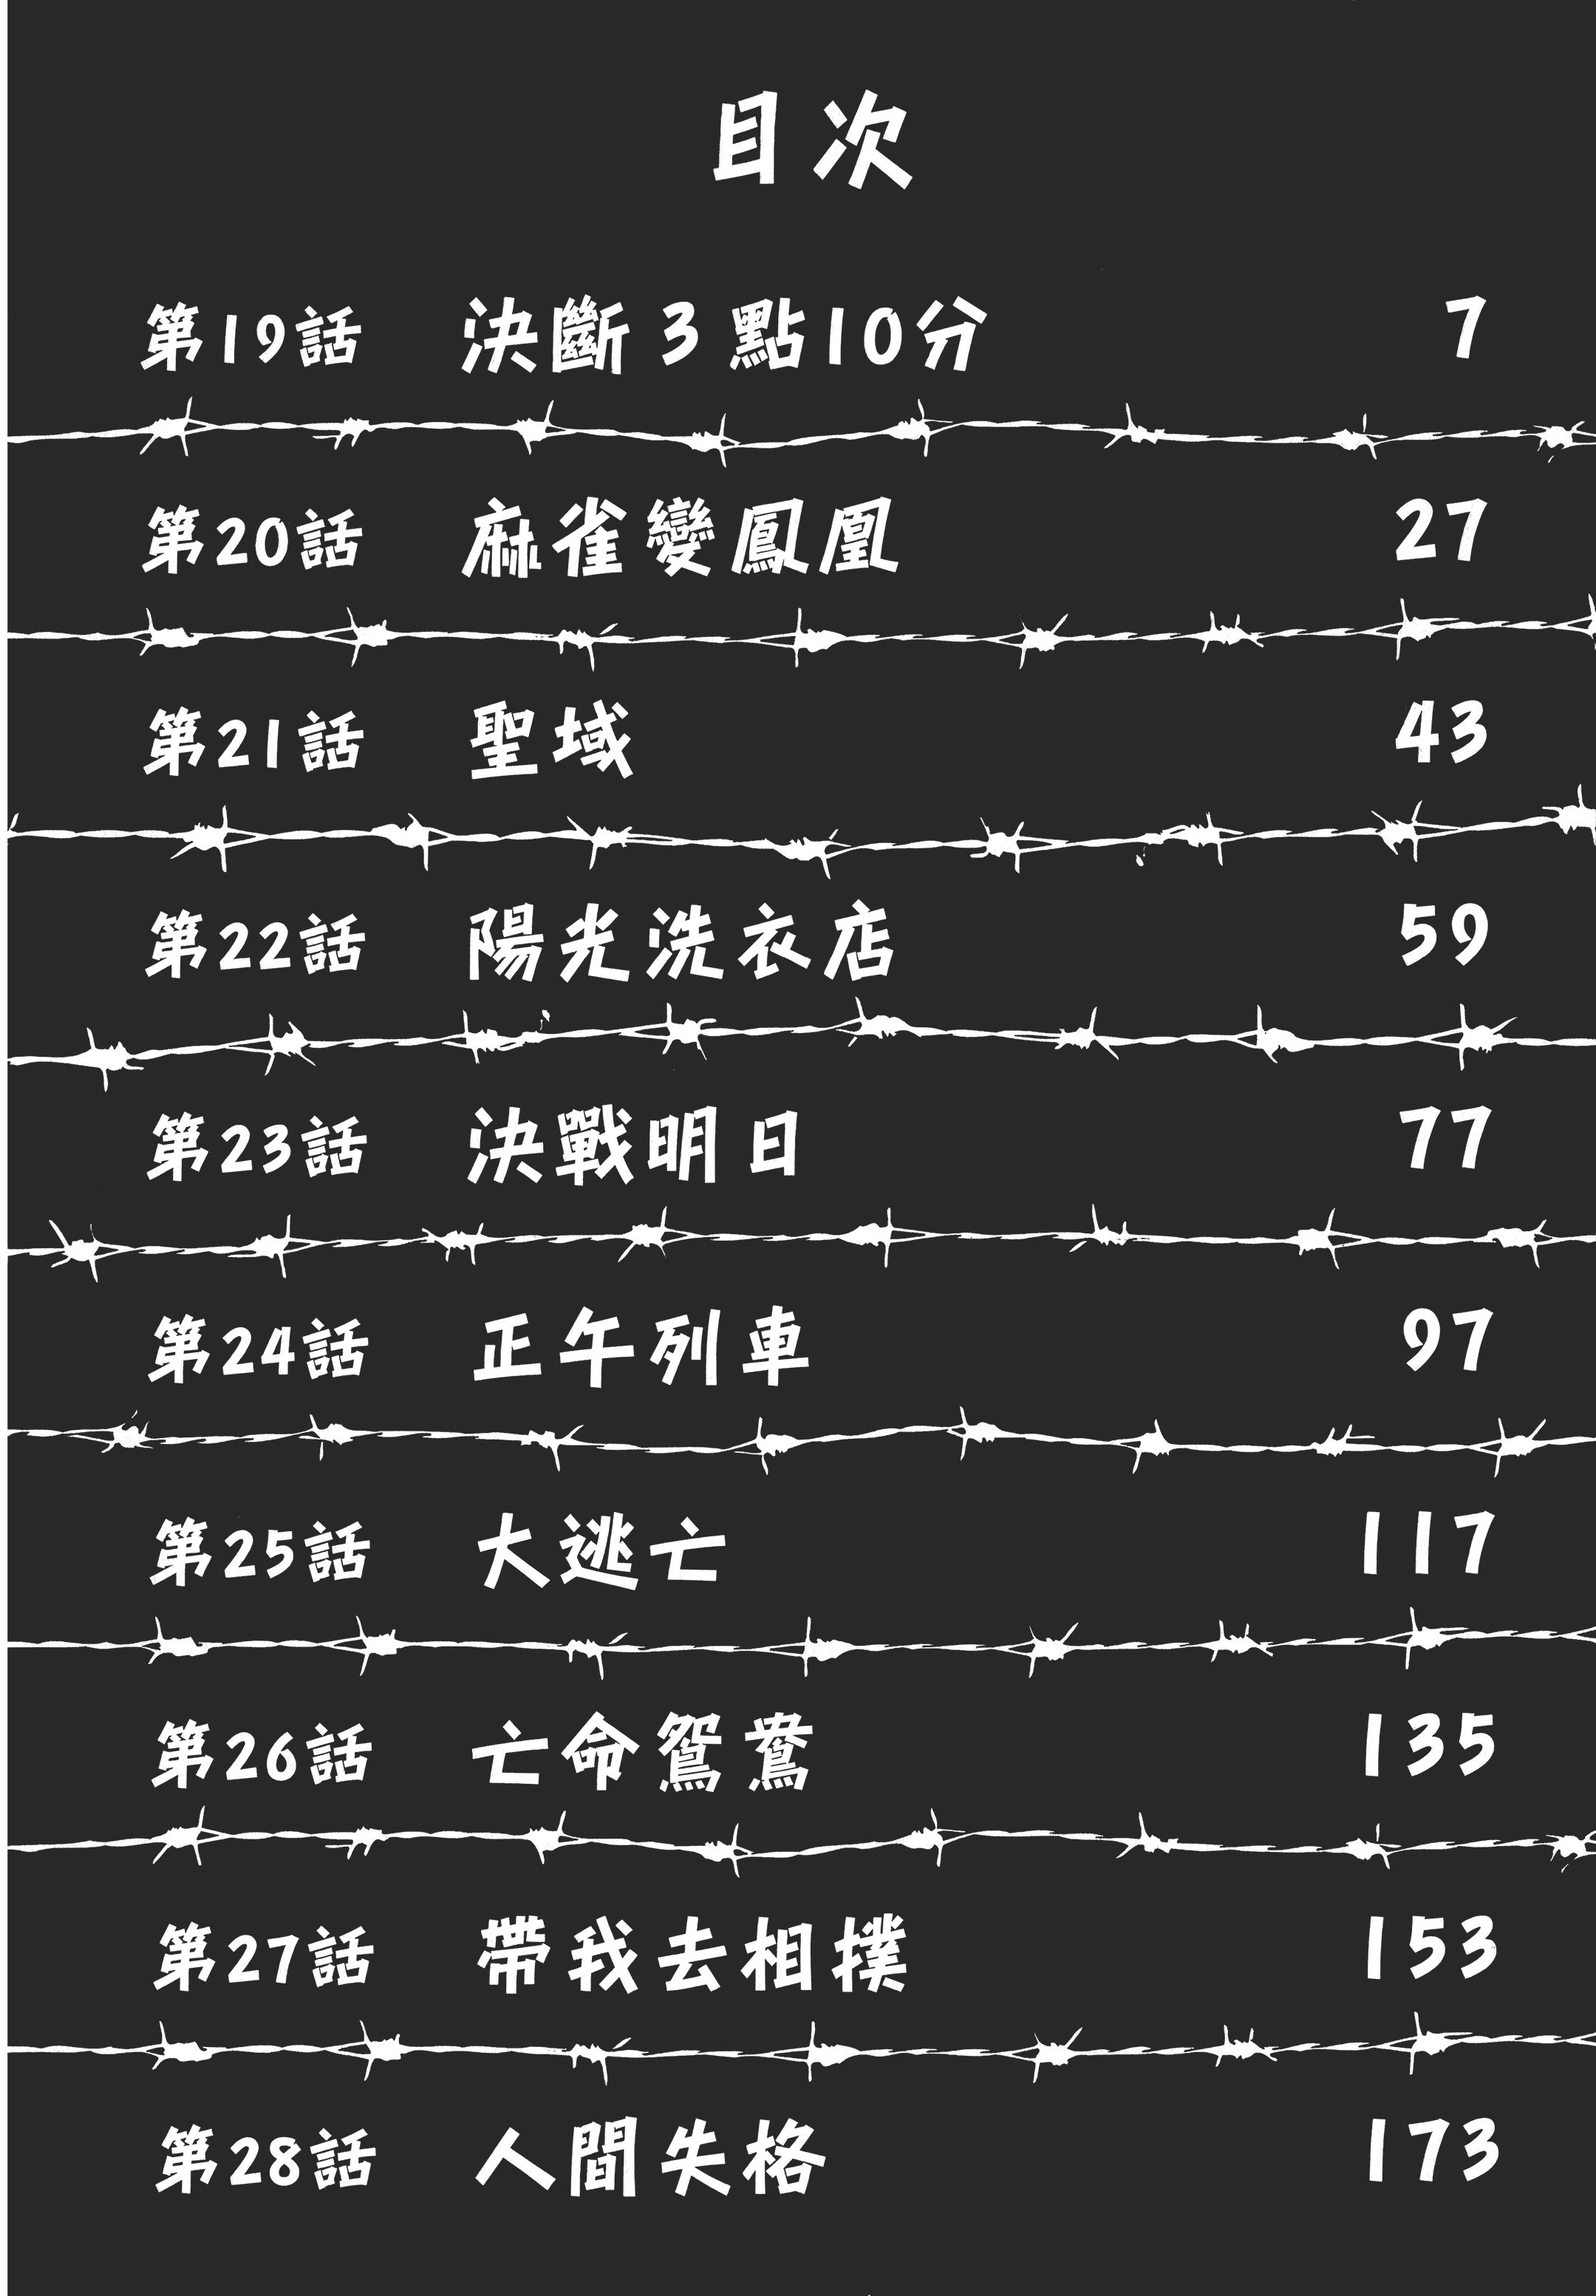 目次
第19話 決斷3點10分 7
第20話 麻雀變鳳凰 27
第21話 聖域 43
第22話 陽光洗衣店 59
第23話 決戰明日 77
第24話 正午列車 97
第25話 大逃亡 117
第26話 亡命鴛鴦 135
第27話 帶我去相撲 153
第28話 人間失格 173